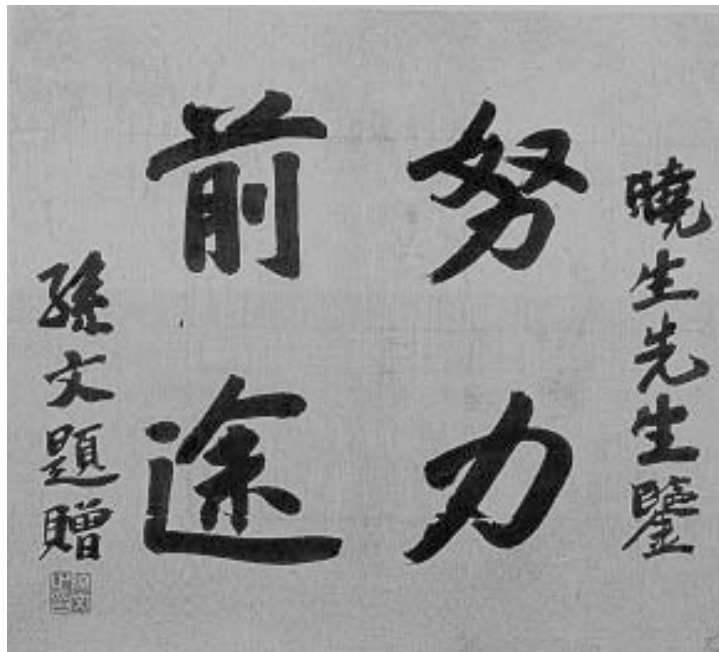 曉生先生鑒
努力
前途
孫文題贈